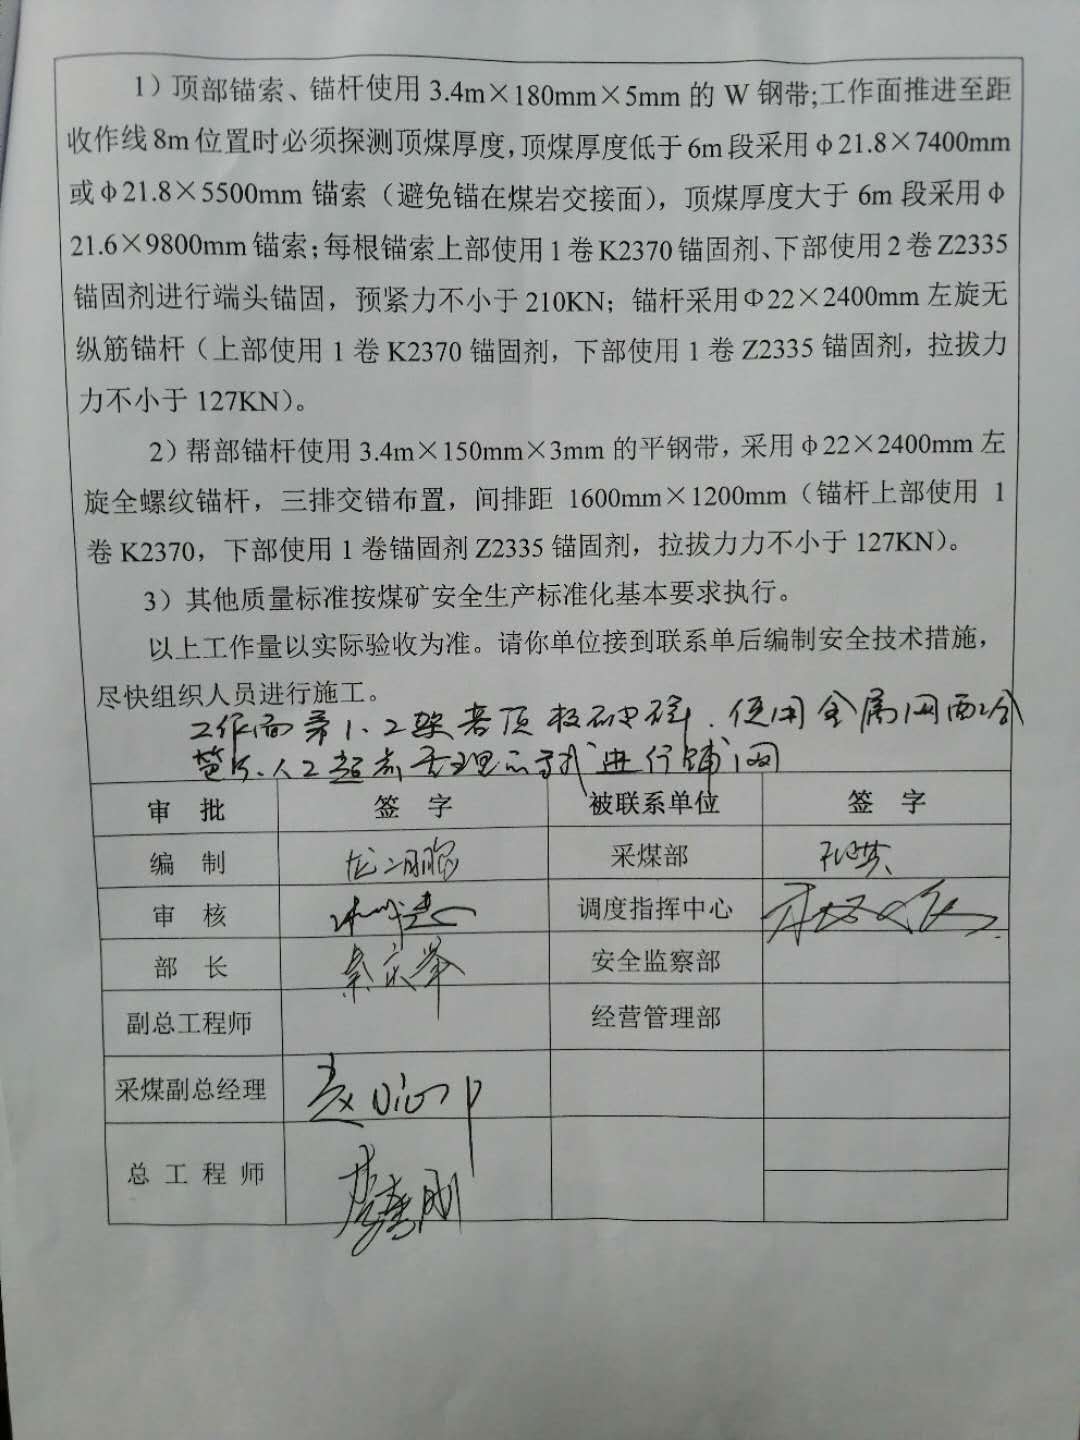 1）顶部锚索、锚杆使用 3.4m×180mm×5mm 的 W 钢带;工作面推进至距
收作线8m位置时必须探测顶煤厚度，顶煤厚度低于6m段采用φ21.8×7400mm
或φ21.8×5500mm 锚索（避免锚在煤岩交接面），顶煤厚度大于 6m 段采用φ
21.6×9800mm锚索；每根锚索上部使用1卷K2370锚固剂、下部使用2卷Z2335
锚固剂进行端头锚固，预紧力不小于210KN；锚杆采用Φ22×2400mm 左旋无
纵筋锚杆（上部使用 1 卷 K2370 锚固剂，下部使用 1 卷 Z2335 锚固剂，拉拔力
力不小于 127KN）。
2）帮部锚杆使用 3.4m×150mm×3mm 的平钢带，采用φ22×2400mm 左
旋全螺纹锚杆，三排交错布置，间排距 1600mm×1200mm（锚杆上部使用 1
卷 K2370，下部使用 1 卷锚固剂 Z2335 锚固剂，拉拔力力不小于 127KN）。
3）其他质量标准按煤矿安全生产标准化基本要求执行。
以上工作量以实际验收为准。请你单位接到联系单后编制安全技术措施，
尽快组织人员进行施工。
工作面第1、2架若顶板破碎，使用金属网配合
进行铺网
审 批 签 字 被联系单位 签 字
编 制 采煤部
审 核 调度指挥中心
部 长 秦庆举 安全监察部
副总工程师 经营管理部
采煤副总经理
总 工 程 师